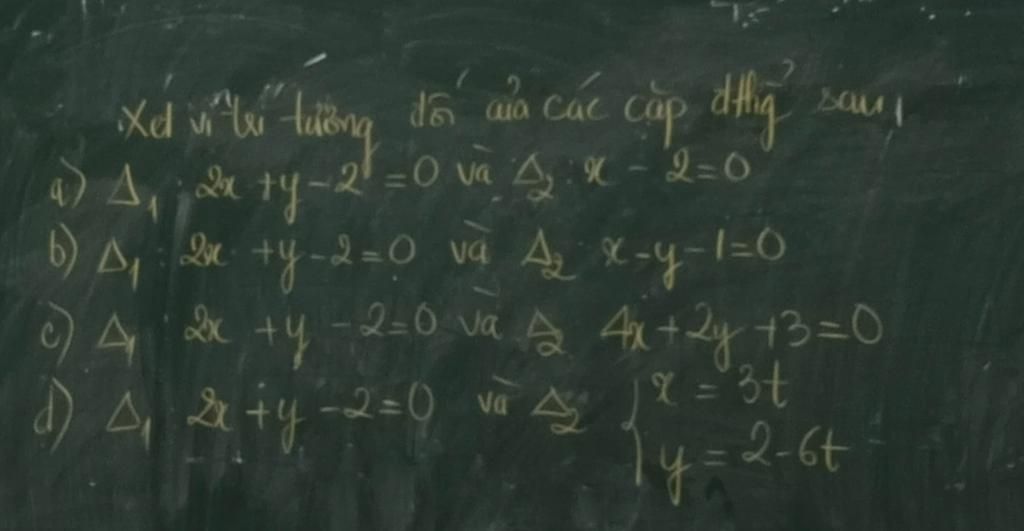 Xét vị trí tương đối của các cặp đthg sau
a) Δ₁: 2x + y - 2 = 0 và Δ₂: x - 2 = 0
b) Δ₁: 2x + y - 2 = 0 và Δ₂ x - y - 1 = 0
c) Δ₁ 2x + y - 2 = 0 và Δ₂ 4x + 2y + 3 = 0
d) Δ₁ 2x + y - 2 = 0 và Δ₂ { x = 3t
y = 2 - 6t